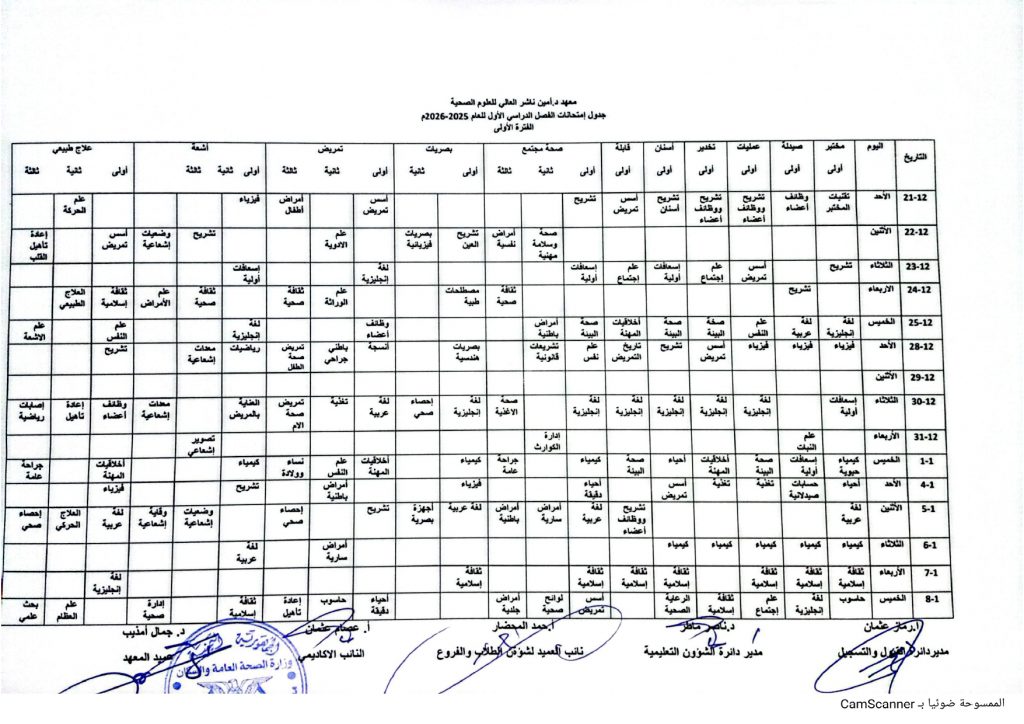 معهد د.أمين ناشر العالي للعلوم الصحية
جدول إمتحانات الفصل الدراسي الأول للعام 2025-2026م
الفترة الأولى
التاريخ اليوم مختبر صيدلة عمليات تخدير أسنان قابلة صحة مجتمع بصريات تمريض أشعة علاج طبيعي
أولى أولى أولى أولى أولى أولى أولى ثانية ثالثة أولى ثانية أولى ثانية ثالثة أولى ثانية ثالثة أولى ثانية ثالثة
21-12 الأحد تقنيات المختبر وظائف أعضاء تشريح ووظائف أعضاء تشريح ووظائف أعضاء تشريح أسنان أسس تمريض تشريح أسس تمريض أمراض أطفال فيزياء علم الحركة
22-12 الأثنين صحة وسلامة مهنية أمراض نفسية تشريح العين بصريات فيزيائية علم الادوية تشريح وضعيات إشعاعية أسس تمريض إعادة تأهيل القلب
23-12 الثلاثاء تشريح أسس تمريض علم إجتماع إسعافات أولية علم إجتماع إسعافات أولية لغة إنجليزية إسعافات أولية
24-12 الأربعاء تشريح ثقافة صحية مصطلحات طبية علم الوراثة ثقافة صحية ثقافة صحية علم الأمراض ثقافة إسلامية العلاج الطبيعي
25-12 الخميس لغة إنجليزية لغة عربية علم النفس صحة البيئة صحة البيئة أخلاقيات المهنة صحة البيئة أمراض باطنية وظائف أعضاء لغة إنجليزية علم النفس علم الاشعة
28-12 الأحد فيزياء فيزياء فيزياء أسس تمريض تشريح تاريخ التمريض علم نفس تشريعات قانونية بصريات هندسية أنسجة باطني جراحي تمريض صحة الطفل رياضيات معدات إشعاعية تشريح
29-12 الأثنين
30-12 الثلاثاء إسعافات أولية لغة إنجليزية لغة إنجليزية لغة إنجليزية لغة إنجليزية لغة إنجليزية صحة الاغذية لغة إنجليزية إحصاء صحي لغة عربية تغذية تمريض صحة الام العناية بالمريض معدات إشعاعية وظائف أعضاء إعادة تأهيل إصابات رياضية
31-12 الأربعاء علم النبات إدارة الكوارث تصوير إشعاعي
1-1 الخميس كيمياء حيوية إسعافات أولية صحة البيئة أخلاقيات المهنة أحياء صحة البيئة كيمياء جراحة عامة كيمياء أخلاقيات المهنة علم النفس نساء وولادة كيمياء أخلاقيات المهنة جراحة عامة
4-1 الأحد أحياء حسابات صيدلانية تغذية تغذية أسس تمريض أحياء دقيقة فيزياء أمراض باطنية تشريح فيزياء
5-1 الأثنين لغة عربية تشريح ووظائف أعضاء لغة عربية أمراض سارية أمراض باطنية لغة عربية أجهزة بصرية تشريح إحصاء صحي وضعيات إشعاعية وقاية إشعاعية لغة عربية العلاج الحركي إحصاء صحي
6-1 الثلاثاء كيمياء كيمياء كيمياء كيمياء كيمياء أمراض سارية لغة عربية
7-1 الأربعاء ثقافة إسلامية ثقافة إسلامية ثقافة إسلامية ثقافة إسلامية ثقافة إسلامية ثقافة إسلامية لغة إنجليزية
8-1 الخميس حاسوب لغة إنجليزية علم إجتماع ثقافة إسلامية الرعاية الصحية أسس تمريض لوائح صحية أمراض جلدية أحياء دقيقة حاسوب إعادة تأهيل ثقافة إسلامية إدارة صحية علم العظام بحث علمي
أ.رماز عثمان د.ناصر ماطر أ.حمد المحضار أ. عصام عثمان د. جمال أمذيب
مديردائرة القبول والتسجيل مدير دائرة الشؤون التعليمية نائب العميد لشؤون الطلاب والفروع النائب الاكاديمي عميد المعهد
وزارة الصحة العامة والسكان
الممسوحة ضوئيا بـ CamScanner